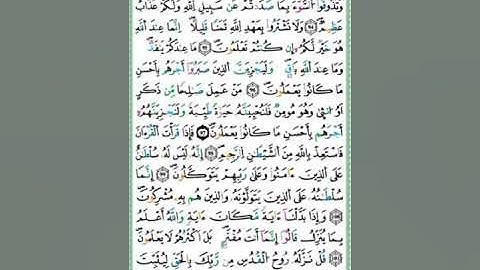 وَتَذُوقُوا۟ ٱلسُّوٓءَ بِمَا صَدَدتُّمْ عَن سَبِيلِ ٱللَّهِ وَلَكُمْ عَذَابٌ
عَظِيمٌ ﴿٩٤﴾ وَلَا تَشْتَرُوا۟ بِعَهْدِ ٱللَّهِ ثَمَنًا قَلِيلًا إِنَّمَا عِندَ ٱللَّهِ
هُوَ خَيْرٌ لَّكُمْ إِن كُنتُمْ تَعْلَمُونَ ﴿٩٥﴾ مَا عِندَكُمْ يَنفَدُ
وَمَا عِندَ ٱللَّهِ بَاقٍ وَلَيَجْزِيَنَّ ٱلَّذِينَ صَبَرُوٓا۟ أَجْرَهُم بِأَحْسَنِ
مَا كَانُوا۟ يَعْمَلُونَ ﴿٩٦﴾ مَنْ عَمِلَ صَـٰلِحًا مِّن ذَكَرٍ
أَوْ أُنثَىٰ وَهُوَ مُؤْمِنٌ فَلَنُحْيِيَنَّهُۥ حَيَوٰةً طَيِّبَةً وَلَنَجْزِيَنَّهُمْ
أَجْرَهُم بِأَحْسَنِ مَا كَانُوا۟ يَعْمَلُونَ ﴿٩٧﴾ فَإِذَا قَرَأْتَ ٱلْقُرْءَانَ
فَٱسْتَعِذْ بِٱللَّهِ مِنَ ٱلشَّيْطَـٰنِ ٱلرَّجِيمِ ﴿٩٨﴾ إِنَّهُۥ لَيْسَ لَهُۥ سُلْطَـٰنٌ
عَلَى ٱلَّذِينَ ءَامَنُوا۟ وَعَلَىٰ رَبِّهِمْ يَتَوَكَّلُونَ ﴿٩٩﴾ إِنَّمَا
سُلْطَـٰنُهُۥ عَلَى ٱلَّذِينَ يَتَوَلَّوْنَهُۥ وَٱلَّذِينَ هُم بِهِۦ مُشْرِكُونَ ﴿١٠٠﴾
وَإِذَا بَدَّلْنَآ ءَايَةً مَّكَانَ ءَايَةٍ وَٱللَّهُ أَعْلَمُ
بِمَا يُنَزِّلُ قَالُوٓا۟ إِنَّمَآ أَنتَ مُفْتَرٍۭ بَلْ أَكْثَرُهُمْ لَا يَعْلَمُونَ
﴿١٠١﴾ قُلْ نَزَّلَهُۥ رُوحُ ٱلْقُدُسِ مِن رَّبِّكَ بِٱلْحَقِّ لِيُثَبِّتَ